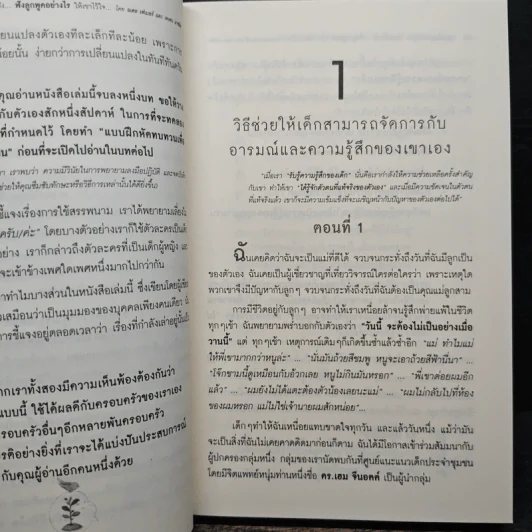 ฟังลูกพูดอย่างไร ให้เข้าใจ...
ยนแปลงตัวเองทีละเล็กทีละน้อย เพราะการ
อยนั้น ง่ายกว่าการเปลี่ยนแปลงในทันทีทันใด
คุณอ่านหนังสือเล่มนี้จบลงหนึ่งบท ขอให้วาง
กับตัวเองสักหนึ่งสัปดาห์ ในการที่จะทดลอง
ที่กำหนดไว้ โดยทำ "แบบฝึกหัดทบทวนเพื่อ
น" ก่อนที่จะเปิดไปอ่านในบทต่อไป
เราพบว่า ความมีวินัยในการพยายามลงมือปฏิบัติ
ช่วยให้คุณซึมซับทักษะหรือวิธีการเหล่านั้นได้ดียิ่งขึ้น)
ชี้แจงเรื่องการใช้สรรพนาม เราได้พยายามเลี่ยง
ครับ/ค่ะ" โดยบางตัวอย่างเราก็ใช้ตัวละครเป็น
อย่าง เราก็กล่าวถึงตัวละครที่เป็นเด็กผู้หญิง
จะเข้าข้างเพศใดเพศหนึ่งมากไปกว่ากัน
ว่าทำไมบางส่วนในหนังสือเล่มนี้ ซึ่งเขียนโดยผู้เขียน
เสมือนว่าเป็นมุมมองของบุคคลเพียงคนเดียว
การชี้แจงอยู่ตลอดเวลาว่า เรื่องที่กำลังเล่าอยู่นั้น
ากเราทั้งสองมีความเห็นพ้องต้องกันว่า
แบบนี้ ใช้ได้ผลดีกับครอบครัวของเราเอง
ครอบครัวอื่นๆอีกหลายพันครอบครัว
รติอย่างยิ่งที่เราจะได้แบ่งปันประสบการณ์
กับคุณผู้อ่านอีกคนหนึ่งด้วย
1
วิธีช่วยให้เด็กสามารถจัดการกับ
อารมณ์และความรู้สึกของเขาเอง
"เมื่อเรา "รับรู้ความรู้สึกของเด็ก" นั่นคือเรากำลังให้ความช่วยเหลือครั้งสำคัญ
กับเขา ทำให้เขา "ได้รู้จักตัวตนที่แท้จริงของตัวเอง" และเมื่อมีความชัดเจนในตัวตน
ที่แท้จริงแล้ว เขาก็จะมีความเข้มแข็งที่จะเผชิญหน้ากับปัญหาของตัวเองต่อไปได้"
ตอนที่ 1
ฉันเคยคิดว่าฉันจะเป็นแม่ที่ดีได้ จวบจนกระทั่งถึงวันที่ฉันมีลูกเป็น
ของตัวเอง ฉันเคยเป็นผู้เชี่ยวชาญที่เที่ยววิจารณ์ใครต่อใครว่า เพราะเหตุใด
พวกเขาจึงมีปัญหากับลูกๆ จวบจนกระทั่งถึงวันที่ฉันต้องเป็นคุณแม่ลูกสาม
การมีชีวิตอยู่กับลูกๆ อาจทำให้เราเหนื่อยล้าจนรู้สึกพ่ายแพ้ในชีวิต
ทุกๆเช้า ฉันพยายามพร่ำบอกกับตัวเองว่า "วันนี้ จะต้องไม่เป็นอย่างเมื่อ
วานนี้" แต่ ทุกๆเช้า เหตุการณ์เดิมๆก็เกิดขึ้นซ้ำแล้วซ้ำอีก "แม่ ทำไมแม่
ให้พี่เขามากกว่าหนูล่ะ" ... "นั่นมันถ้วยสีชมพู หนูจะเอาถ้วยสีฟ้านี่นา" ...
"โจ๊กชามนี้ดูเหมือนกับอ้วกเลย หนูไม่กินมันหรอก" ... "พี่เขาต่อยผมอีก
แล้ว" ... "ผมยังไม่ได้แตะต้องตัวน้องเลยนะแม่" ... "ผมไม่กลับไปที่ห้อง
ของผมหรอก แม่ไม่ใช่เจ้านายผมสักหน่อย"...
เด็กๆทำให้ฉันเหนื่อยแทบขาดใจทุกวัน และแล้ววันหนึ่ง แม้ว่ามัน
จะเป็นสิ่งที่ฉันไม่เคยคาดคิดมาก่อนก็ตาม ฉันได้มีโอกาสเข้าร่วมสัมมนากับ
ผู้ปกครองกลุ่มหนึ่ง กลุ่มของเรานัดพบกันที่ศูนย์แนะแนวเด็กประจำชุมชน
โดยมีจิตแพทย์หนุ่มท่านหนึ่งชื่อ ดร.เฮม จีนอตต์ เป็นผู้นำกลุ่ม